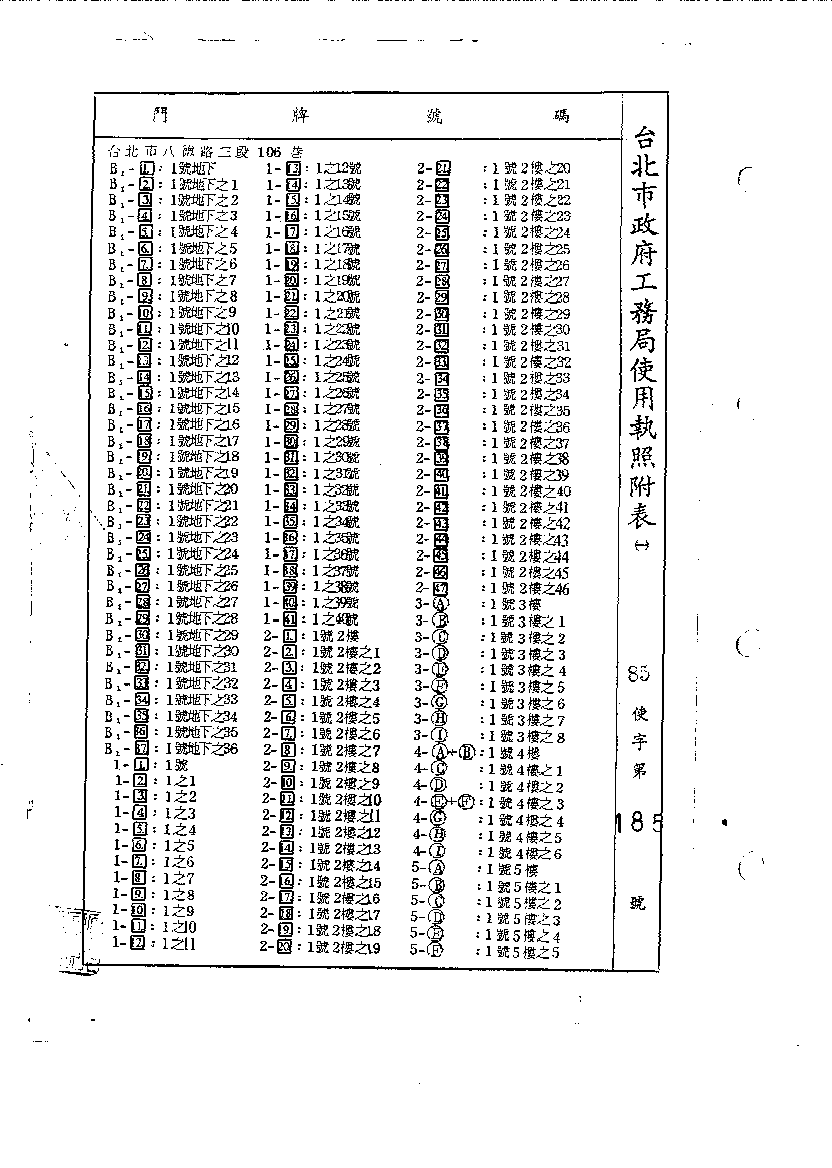 門牌號碼
台北市八德路三段106巷
B1-1:1號地下
B1-2:1號地下之1
B1-3:1號地下之2
B1-4:1號地下之3
B1-5:1號地下之4
B1-6:1號地下之5
B1-7:1號地下之6
B1-8:1號地下之7
B1-9:1號地下之8
B1-10:1號地下之9
B1-11:1號地下之10
B1-12:1號地下之11
B1-13:1號地下之12
B1-14:1號地下之13
B1-15:1號地下之14
B1-16:1號地下之15
B1-17:1號地下之16
B1-18:1號地下之17
B1-19:1號地下之18
B1-20:1號地下之19
B1-21:1號地下之20
B1-22:1號地下之21
B1-23:1號地下之22
B1-24:1號地下之23
B1-25:1號地下之24
B1-26:1號地下之25
B1-27:1號地下之26
B1-28:1號地下之27
B1-29:1號地下之28
B1-30:1號地下之29
B1-31:1號地下之30
B1-32:1號地下之31
B1-33:1號地下之32
B1-34:1號地下之33
B1-35:1號地下之34
B1-36:1號地下之35
B1-37:1號地下之36
1-1:1號
1-2:1之1
1-3:1之2
1-4:1之3
1-5:1之4
1-6:1之5
1-7:1之6
1-8:1之7
1-9:1之8
1-10:1之9
1-11:1之10
1-12:1之11
1-13:1之12號
1-14:1之13號
1-15:1之14號
1-16:1之15號
1-17:1之16號
1-18:1之17號
1-19:1之18號
1-20:1之19號
1-21:1之20號
1-22:1之21號
1-23:1之22號
1-24:1之23號
1-25:1之24號
1-26:1之25號
1-27:1之26號
1-28:1之27號
1-29:1之28號
1-30:1之29號
1-31:1之30號
1-32:1之31號
1-33:1之32號
1-34:1之33號
1-35:1之34號
1-36:1之35號
1-37:1之36號
1-38:1之37號
1-39:1之38號
1-40:1之39號
1-41:1之40號
2-1:1號2樓
2-2:1號2樓之1
2-3:1號2樓之2
2-4:1號2樓之3
2-5:1號2樓之4
2-6:1號2樓之5
2-7:1號2樓之6
2-8:1號2樓之7
2-9:1號2樓之8
2-10:1號2樓之9
2-11:1號2樓之10
2-12:1號2樓之11
2-13:1號2樓之12
2-14:1號2樓之13
2-15:1號2樓之14
2-16:1號2樓之15
2-17:1號2樓之16
2-18:1號2樓之17
2-19:1號2樓之18
2-20:1號2樓之19
2-21:1號2樓之20
2-22:1號2樓之21
2-23:1號2樓之22
2-24:1號2樓之23
2-25:1號2樓之24
2-26:1號2樓之25
2-27:1號2樓之26
2-28:1號2樓之27
2-29:1號2樓之28
2-30:1號2樓之29
2-31:1號2樓之30
2-32:1號2樓之31
2-33:1號2樓之32
2-34:1號2樓之33
2-35:1號2樓之34
2-36:1號2樓之35
2-37:1號2樓之36
2-38:1號2樓之37
2-39:1號2樓之38
2-40:1號2樓之39
2-41:1號2樓之40
2-42:1號2樓之41
2-43:1號2樓之42
2-44:1號2樓之43
2-45:1號2樓之44
2-46:1號2樓之45
2-47:1號2樓之46
3-Ⓐ:1號3樓
3-Ⓑ:1號3樓之1
3-Ⓒ:1號3樓之2
3-Ⓓ:1號3樓之3
3-Ⓔ:1號3樓之4
3-Ⓕ:1號3樓之5
3-Ⓖ:1號3樓之6
3-Ⓗ:1號3樓之7
3-Ⓘ:1號3樓之8
4-Ⓐ+Ⓑ:1號4樓
4-Ⓒ:1號4樓之1
4-Ⓓ:1號4樓之2
4-Ⓔ+Ⓕ:1號4樓之3
4-Ⓖ:1號4樓之4
4-Ⓗ:1號4樓之5
4-Ⓘ:1號4樓之6
5-Ⓐ:1號5樓
5-Ⓑ:1號5樓之1
5-Ⓒ:1號5樓之2
5-Ⓓ:1號5樓之3
5-Ⓔ:1號5樓之4
5-Ⓕ:1號5樓之5
台北市政府工務局使用執照附表(一)
85使字第185號